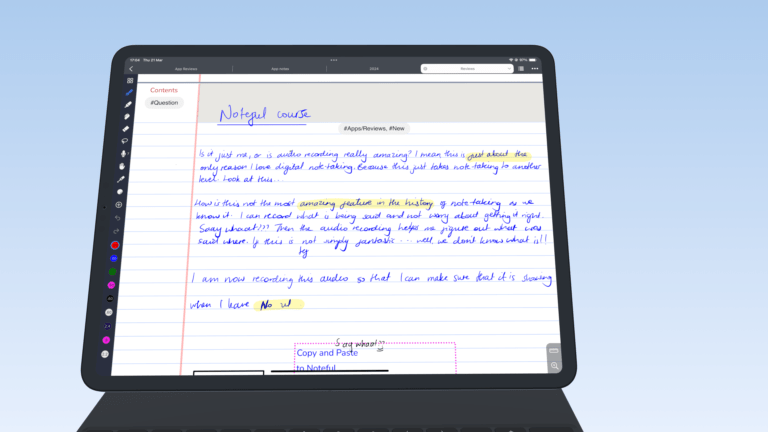 17:54 Thu 21 Mar
App Reviews
App Index
2024
Reviews
Contents
#Question
Noteful course
#Apps/Reviews, #New
Is it just me, or is audio recording really amazing? I mean this is just about the
only reason I love digital note-taking. Because this just takes note-taking to another
level. Look at this...
How is this not the most amazing feature in the history of note-taking as we
know it. I can record what is being said and not worry about getting it right.
Saay whaat!?? Then the audio recording helps me figure out what was
said where. If this is not simply fantastic ... well we don't know what is!!
I am now recording this audio so that I can make sure that it is showing
when I leave No
Say whaat
Copy and Paste
to Noteful